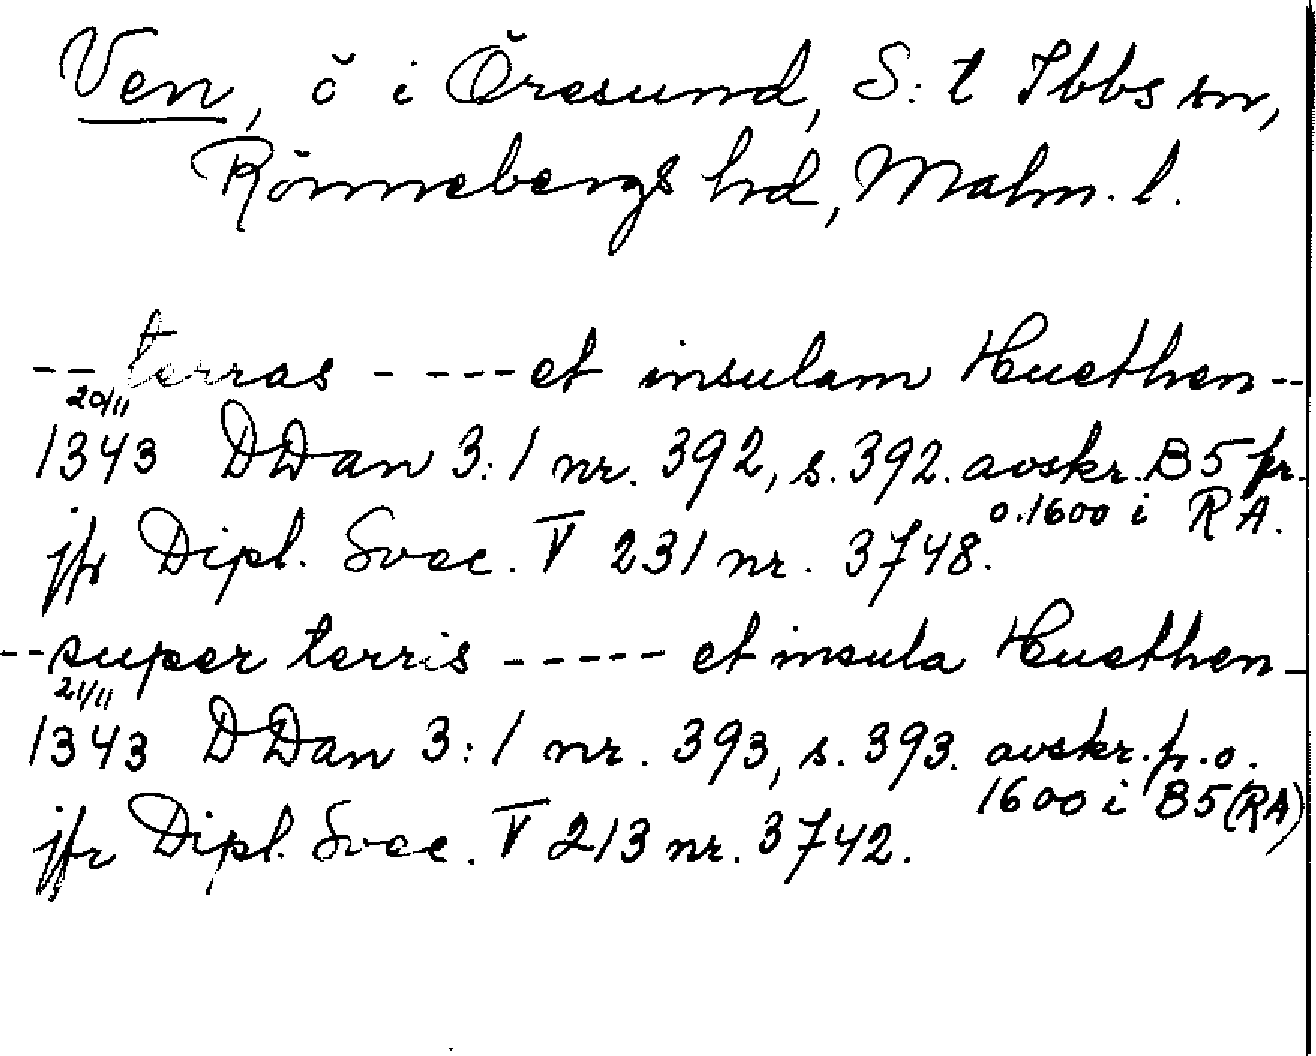 Ven, ö i Öresund, S:t Ibbs sn,
Rönnebergs hd, Malm. l.
-- terras - ---- et insulam Huethen --
20/11
1343 DDan 3:1 nr. 392, s. 392. avskr. B5 pr.
o. 1600 i RA.
jfr Dipl. Svec. V 231 nr. 3748.
-- super terris ----- et insula Huethen -
21/11
1343 DDan 3:1 nr. 393, s. 393. avskr. fr. o.
1600 i B5 (RA)
jfr Dipl. Svec. V 213 nr. 3742.